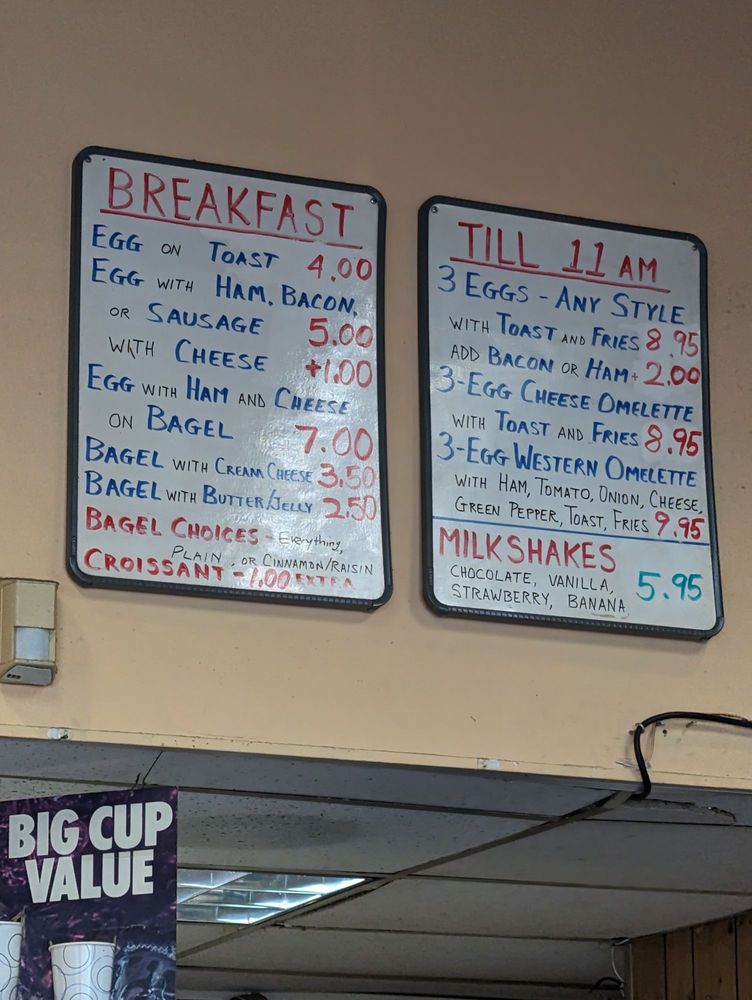 BREAKFAST
EGG ON TOAST 4.00
EGG WITH HAM, BACON,
OR SAUSAGE 5.00
WITH CHEESE +1.00
EGG WITH HAM AND CHEESE
ON BAGEL 7.00
BAGEL WITH CREAM CHEESE 3.50
BAGEL WITH BUTTER/JELLY 2.50
BAGEL CHOICES - Everything,
PLAIN, OR CINNAMON/RAISIN
CROISSANT - 1.00 EXTRA
TILL 11 AM
3 EGGS - ANY STYLE
WITH TOAST AND FRIES 8.95
ADD BACON OR HAM + 2.00
3-EGG CHEESE OMELETTE
WITH TOAST AND FRIES 8.95
3-EGG WESTERN OMELETTE
WITH HAM, TOMATO, ONION, CHEESE,
GREEN PEPPER, TOAST, FRIES 9.95
MILKSHAKES
CHOCOLATE, VANILLA, 5.95
STRAWBERRY, BANANA
BIG CUP
VALUE